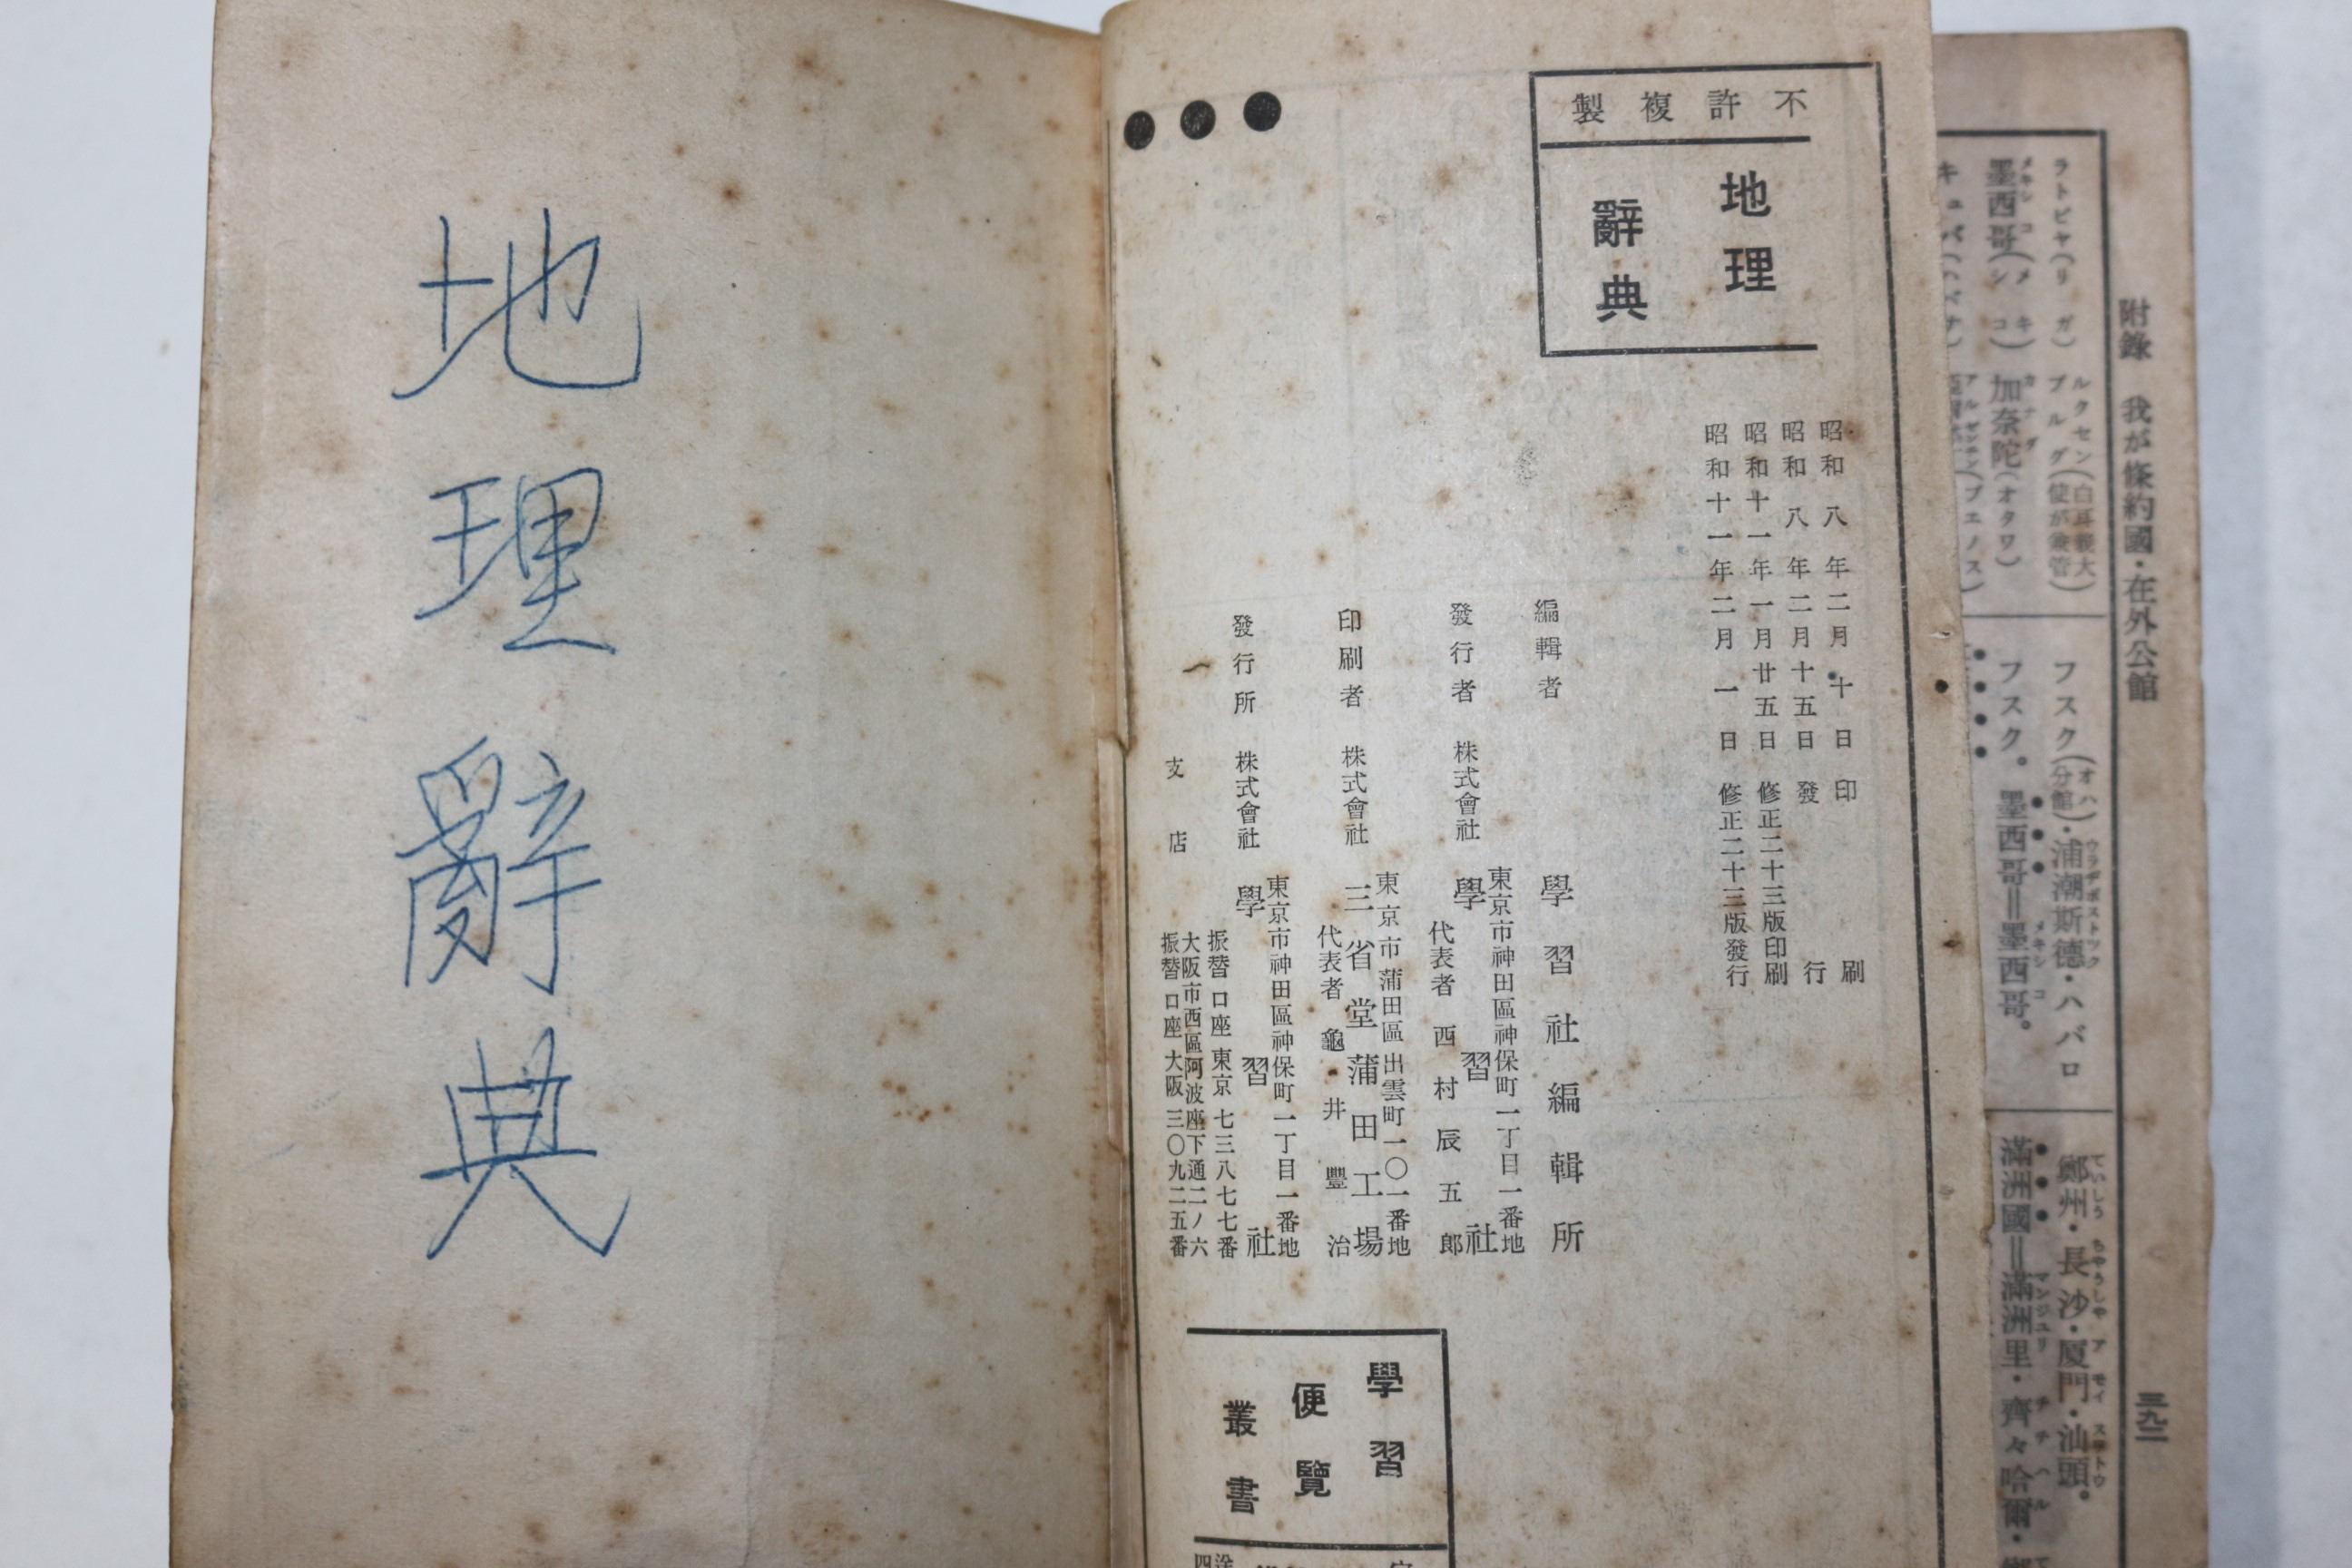 附錄 我が條約國・在外公館
三九二
ラトビヤ(リガ)
墨西哥(メキシコ)
加奈陀(オタワ)
フスク(分館)・浦潮斯德・ハバロ
フスク。墨西哥‖墨西哥。
鄭州・長沙・厦門・汕頭。
滿洲國‖滿洲里・齊々哈爾・
不許複製
地理
辭典
昭和八年二月十日印刷
昭和八年二月十五日發行
昭和十一年一月廿五日修正二十三版印刷
昭和十一年二月一日修正二十三版發行
編輯者 學習社編輯所
東京市神田區神保町一丁目一番地
發行者 株式會社 學習社
代表者 西村辰五郎
東京市蒲田區出雲町一〇一番地
印刷者 株式會社 三省堂蒲田工場
代表者 龜井豐治
東京市神田區神保町一丁目一番地
發行所 株式會社 學習社
振替口座東京七三八七七番
支店 大阪市西區阿波座下通二ノ六
振替口座大阪三〇九二五番
學習
便覽
叢書
地理辭典